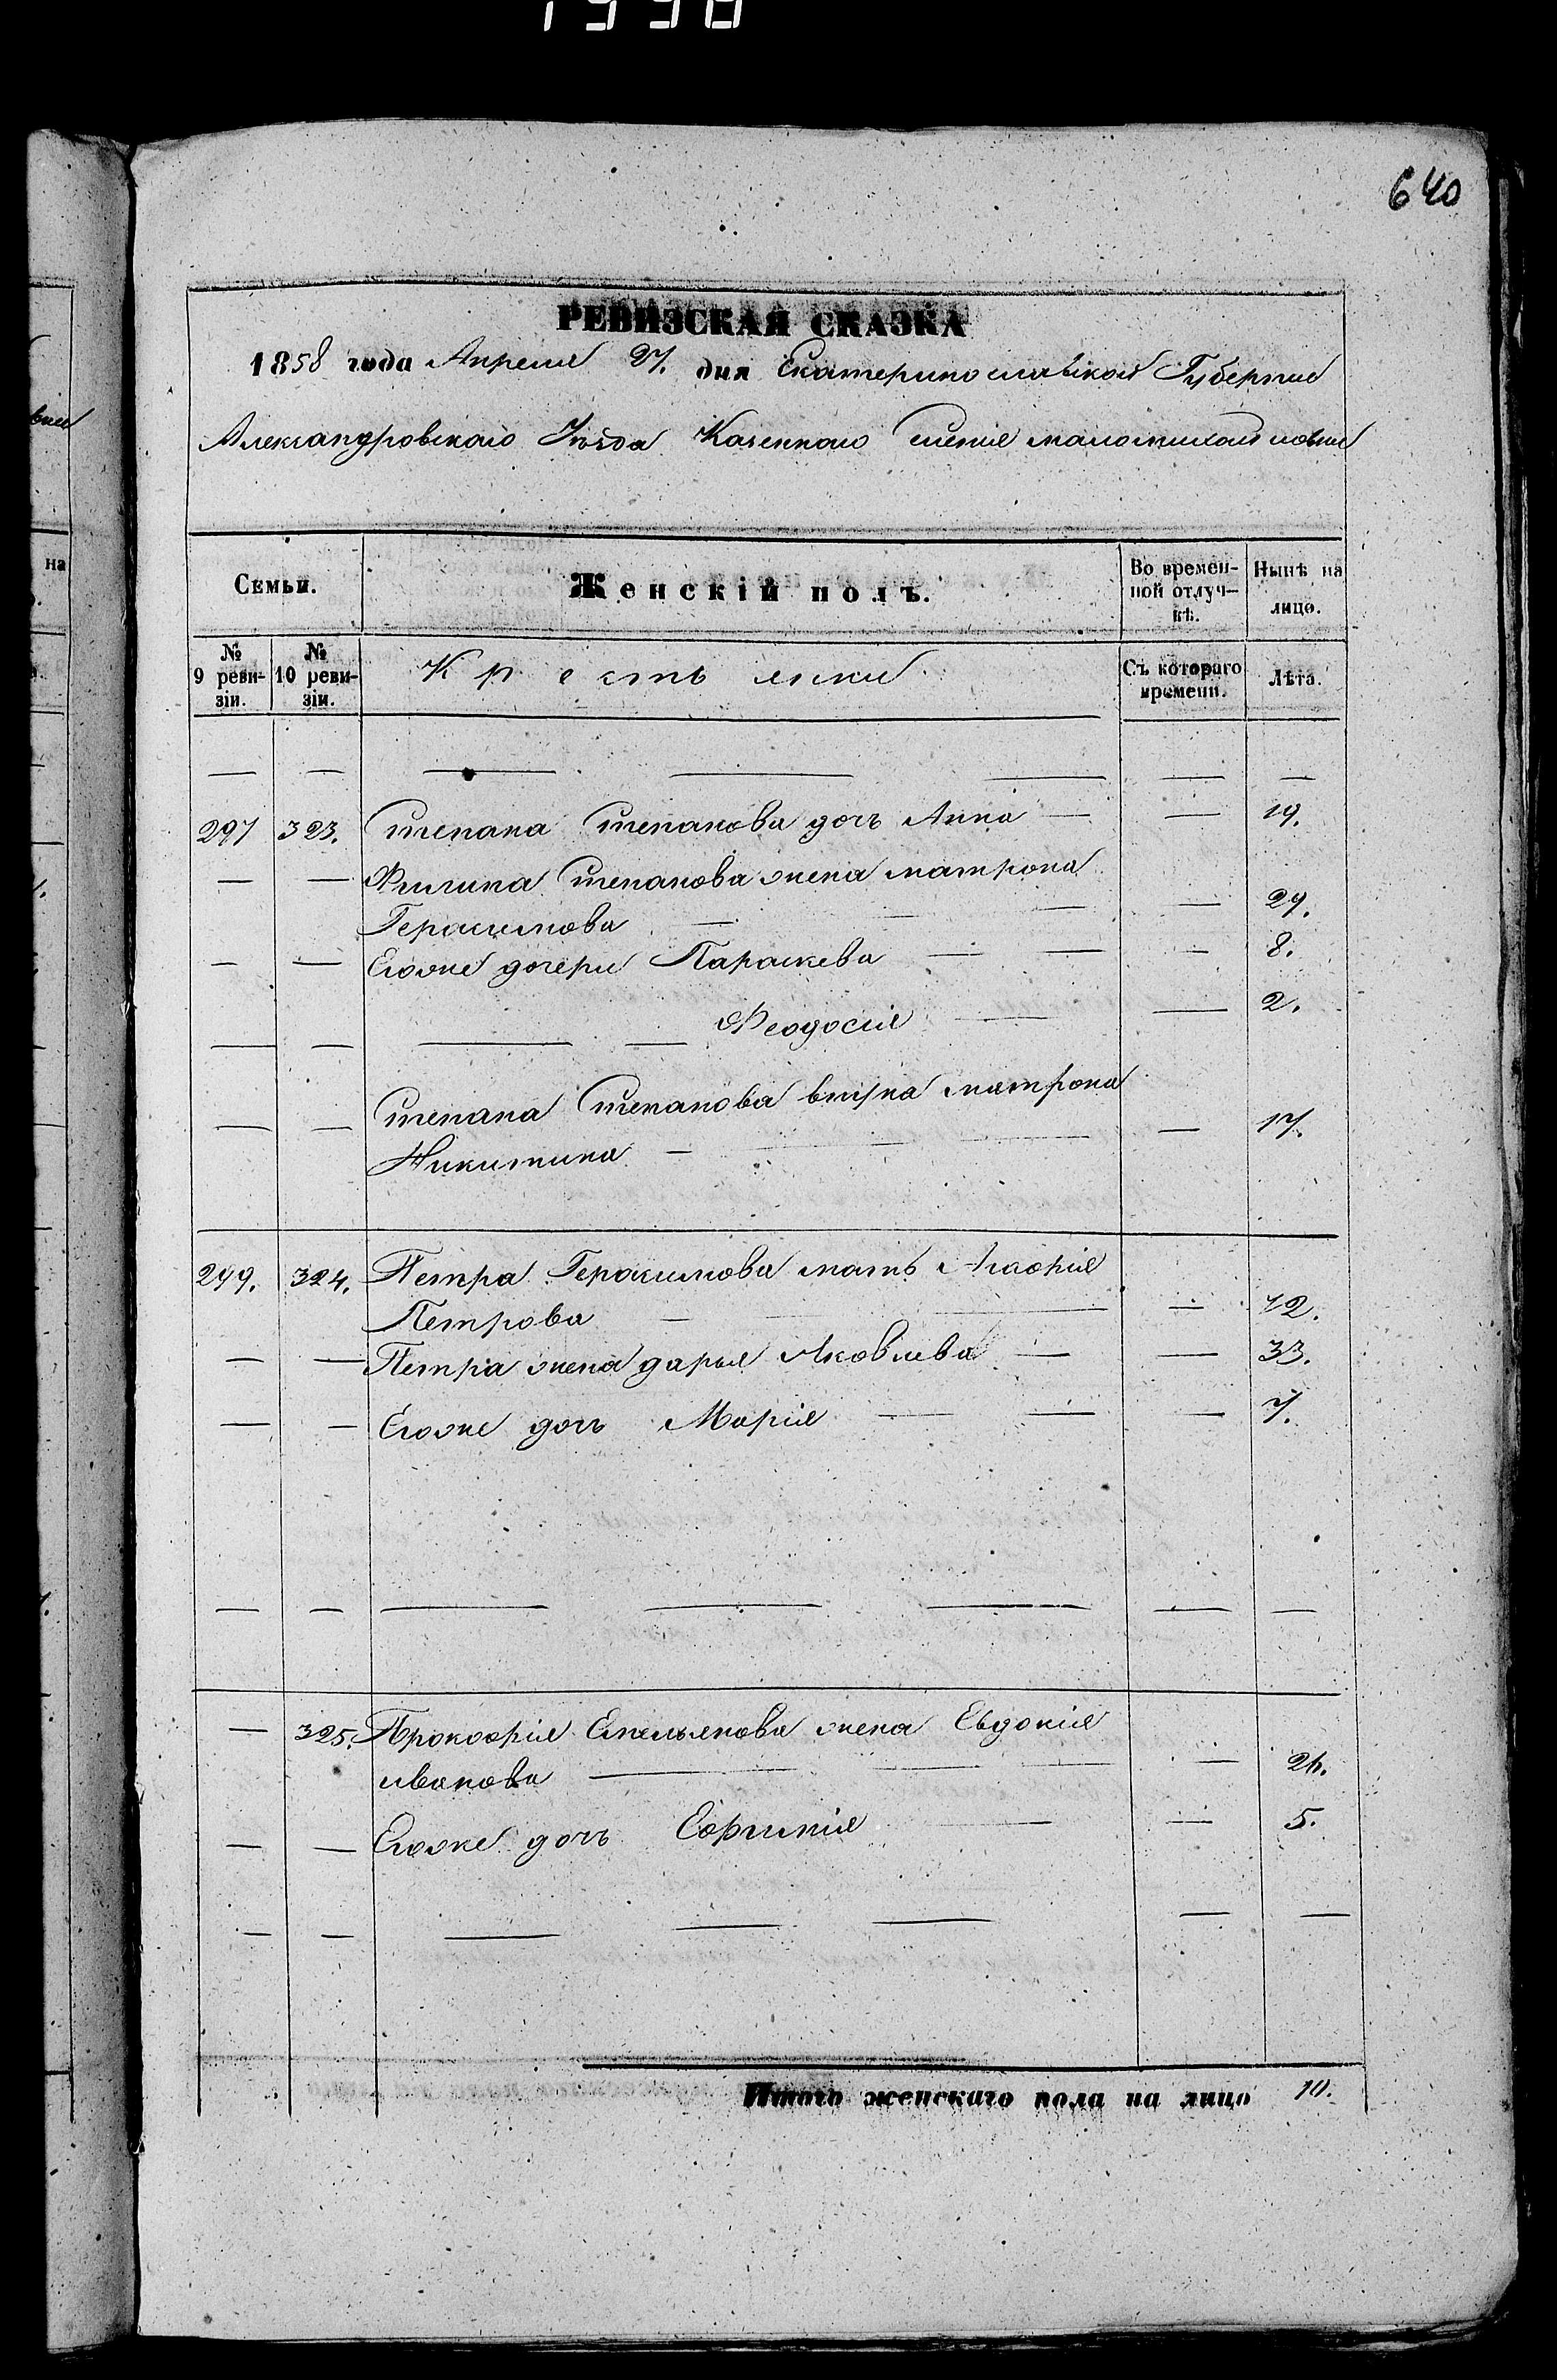 1998
640
РЕВИЗСКАЯ СКАЗКА
1858 года Апреля 27. дня Екатеринославской Губернии
Александровскаго Уѣзда Казеннаго селенія маломихайловки
Семьи. Женскій полъ. Во времен- Нынѣ на
ной отлуч- лицо.
кѣ.
№ № Крестьянки Съ котораго Лѣта.
9 реви- 10 реви- времени.
зіи. зіи.
297 323. Степана Степанова дочь Анна — — 19.
— — Филипа Степанова жена матрона
Герасимова — — — — 29.
— — Егоже дочери Параскева — — — 8.
— — — — Феодосія — — 2.
— — Степана Степанова внука матрона
Никитина — — — — 17.
299. 324. Петра Герасимова мать Агафія
Петрова — — — 72.
— — Петра жена дарья Яковлева — — 33.
— — Егоже дочь Марія — — — 7.
— 325. Прокофія Емельянова жена Евдокія
иванова — — — — 26.
— — Егоже дочь Ефимія — — 5.
Итого женскаго пола на лицо 10.